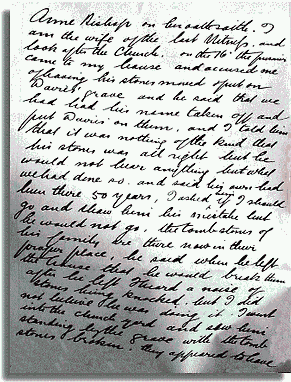 Anne Bishop on her oath saith. I
am the wife of the last Witness, and
look after the Church. on the 16th the prisoner
came to my house and accused me
of having his stones moved & put on
Davies' grave and he said that we
had had his name taken off and
put Davies on them, and I told him
that it was nothing of the kind that
his stones was all right but he
would not hear anything but what
we had done so, and said his own had
been there 50 years, I asked if I should
go and show him his mistake but
he would not go, the tomb stones of
his family are there now in their
proper place, he said when he left
the house that he would break them
after he left I heard a noise of
stones being knocked, but I did
not believe he was doing it. I went
into the church yard and saw him
standing by the grave with the tomb
stones broken. they appeared to have